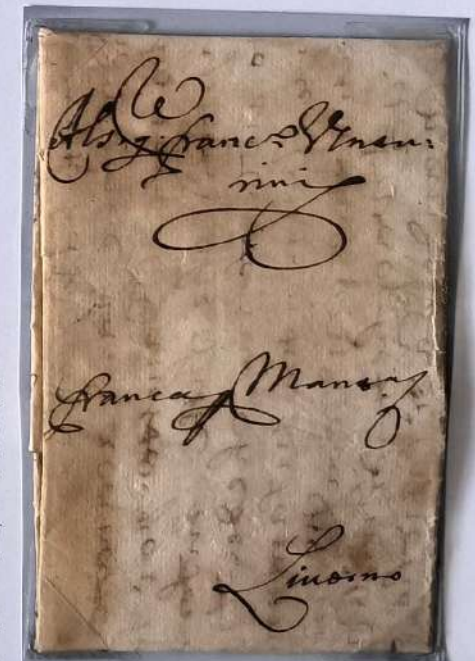 Al sig. Franc.o Vnan:
nini
franca p Mantoa
Liuorno